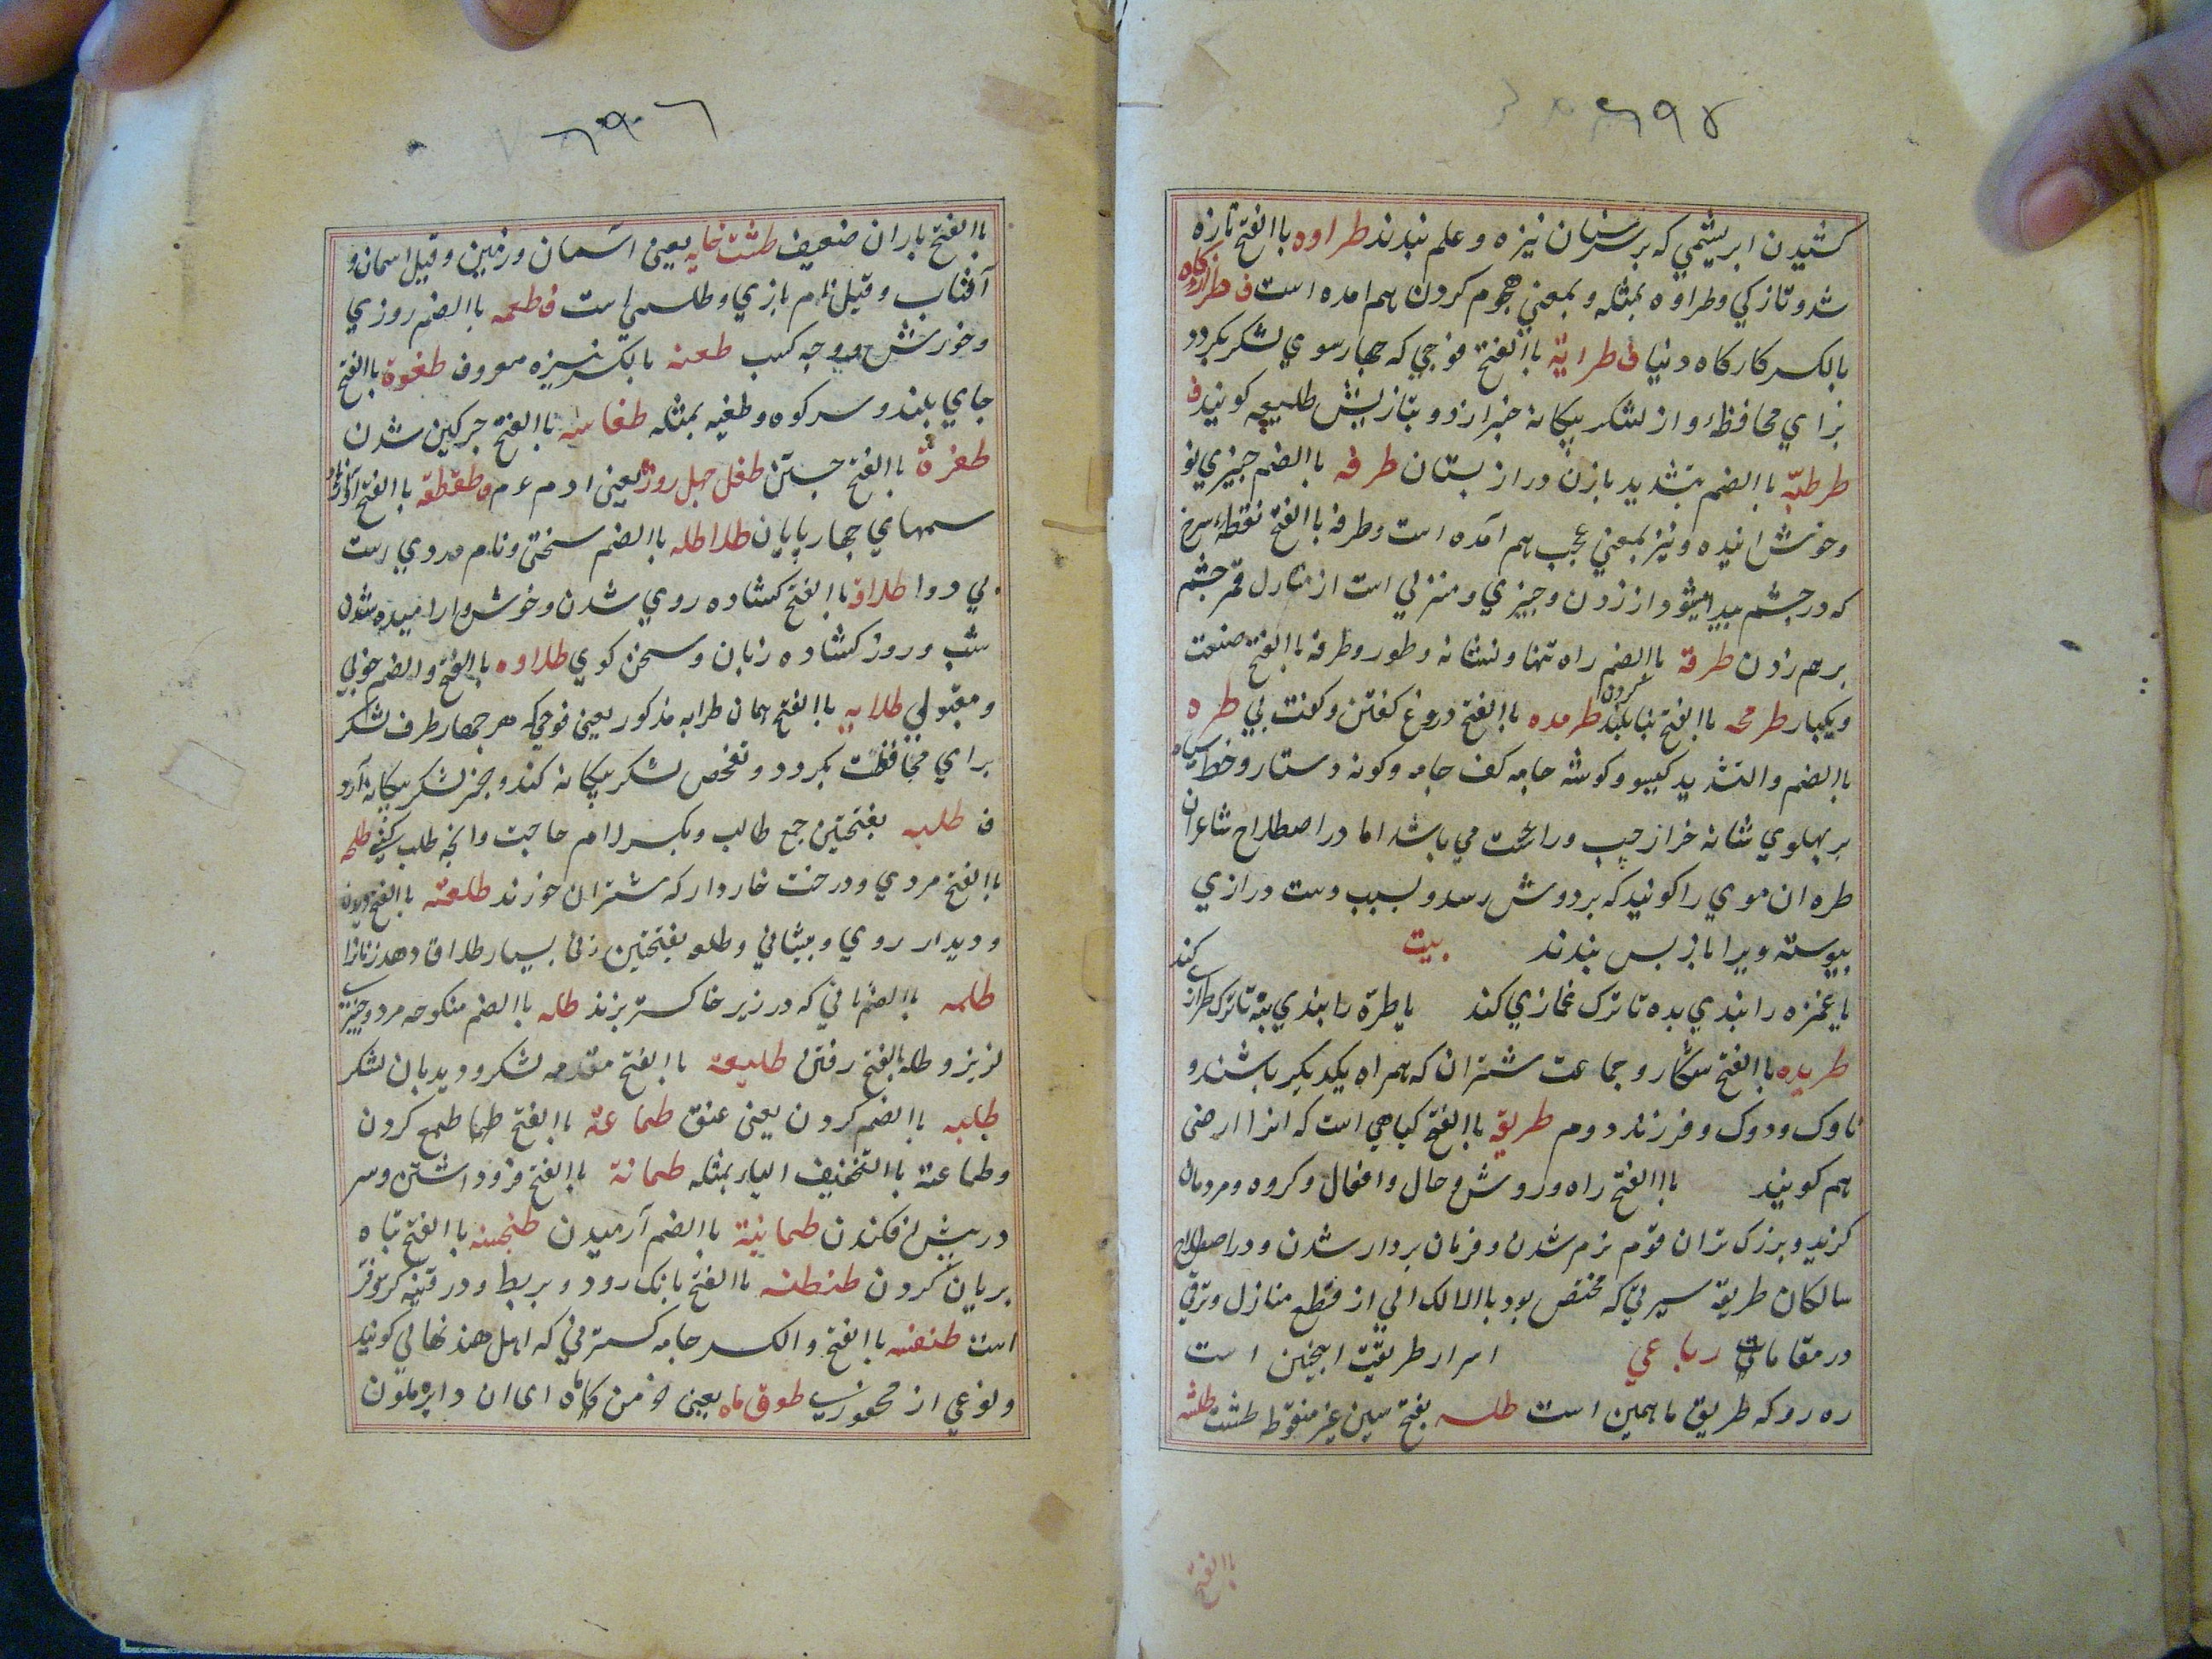 ۶۹۴
کشیدن ابریشمی که بر سر سنان نیزه و علم بندند طراوه باالفتح تازه
شد و تازکی و طراوه بمثله و بمعنی هجوم کردن هم امده است ف
بالکسر کارکاه دنیا ف طرایة باالفتح فوجی که چهار سوی لشکر بکردد
برای محافظة و از لشکر بیکانه خبر ارند و بتازیش طلیعه کویند ف
طرطبّه باالضم بتشدید با زن دراز پستان طرفه باالضم چیزی نو
و خوش اینده و نیز بمعنی عجب هم آمده است و طرفه باالفتح نقطه سرخ
که در چشم پیدا میشود از زدن چیزی و منزلی است از منازل قمر چشم
برهم زدن طرقة باالضم راه تنها و نشانه و طور و طرقه باالفتح صنعت
و یکبار طرمحه باالفتح بنا بلند کردن طرمده باالفتح دروغ کفتن و کفت بی طره
باالضم والتشدید کیسو و کوشه جامه کف جامه و کونه دستار و خط سیاه
بر پهلوی شانه خر از چپ و راست می باشد اما در اصطلاح شاعران
طره ان موی را کویند که بر دوش رسد و بسبب دست درازی
پیوسته ویرا باز پس بندند بیت
یا غمزه را بندی بده تا ترک غمازی کند یا طرة را بندی بنه تا ترک طراری کند
طریده باالفتح شکار و جماعت شتران که همراه یکدیکر باشند و
ناوک و دوک و فرزند دوم طریقه باالفتح کیاهی است که انرا ارضی
هم کویند باالفتح راه و روش و حال و افعال و کروه و مردمان
کزید و بزرک تران قوم نرم شدن و فرمان بردار شدن و در اصطلاح
سالکان طریقه سیرتی که مختص بود باالسالک الی از قطع منازل و ترقی
در مقامات رباعی اسرار طریقت اینچنین است
ره رو که طریق ما همین است طلسه بفتح سین غیر منقوط طشت طشه
باالفتح
۶۹۶
باالفتح باران ضعیف طشت خایه یعنی اسمان و زمین و قیل اسمان و
آفتاب و قیل نام بازی و طلسمی است ف طعمه باالضم روزی
و خورش و وجه کسب طعنه بالکسر نیزه معروف طغوة باالفتح
جای بلند و سر کوه و طغیه بمثله طفاسه باالفتح چرکین شدن
طفرة باالفتح جستن طفل چهل روزه یعنی ادم ع م ف طقطقه باالفتح
سمهای چهارپایان طلاطله باالضم سختی و نام مردی است
بی دوا طلاقة باالفتح کشاده روی شدن و خوش و ارامیده شدن
شب و روز کشاده زبان و سخن کوی طلاوه باالفتح والضم خوبی
و مقبولی طلایه باالفتح همان طرایه مذکور یعنی فوجی که هر چهار طرف لشکر
برای محافظت بکردد و تفحص لشکر بیکانه کند و خبر لشکر بیکانه آرد
ف طلبه بفتحتین جمع طالب و بکسر لام حاجت و انچه طلب کنی طلحه
باالفتح مردی و درخت خاردار که شتران خورند طلعة باالفتح
و دیدار روی و پیشانی و طلعه بفتحتین زنی بسیار طلاق دهد زنانرا
طلمه باالضم نانی که در زیر خاکستر بزند طله باالضم منکوحه مرد و چیزی
لزیز و طله باالفتح رفتن طلیعة باالفتح مقدمه لشکر و دیدبان لشکر
طلیه باالضم کردن یعنی عنق طماعة باالفتح طما طمع کردن
و طماعة باالتخفیف الیاء بمثله طمانة باالفتح فرو داشتن و سر
در پیش افکندن طمانینة باالضم آرمیدن طنجنه باالفتح تباه
بریان کردن طنطنه باالفتح بانک رود و بربط و در قنیه کرّ و فرّ
است طنفسه باالفتح والکسر جامه کستردنی که اهل هند نهالی کویند
و نوعی از محفوری طوق ماه یعنی خرمن کاه ای ان دایره ملون